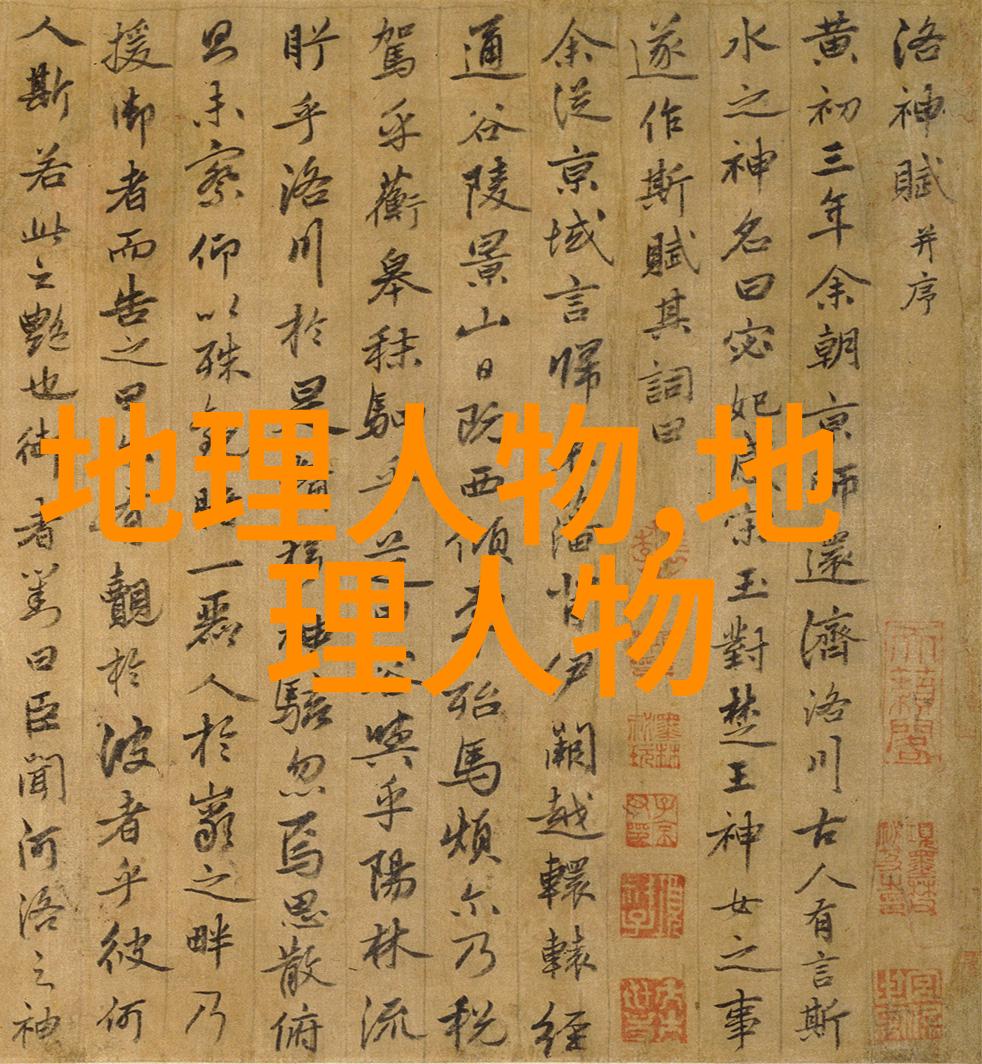 洛神賦并序
黄初三年余朝京師還濟洛川古人有言斯
水之神名曰宓妃感宋玉對楚王神女之事
遂作斯賦其詞曰
余從京域言歸背伊闕越轘轅經
通谷陵景山日既西傾車殆馬煩尒乃税
駕乎蘅皋秣駟乎芝田容與乎陽林流
眄乎洛川於是精移神駭忽焉思散俯
則未察仰以殊觀睹一麗人於巖之畔乃
援御者而告之曰尒有覿於彼者乎彼何
人斯若此之艷也御者對曰臣聞河洛之神
地理人物,地
理人物